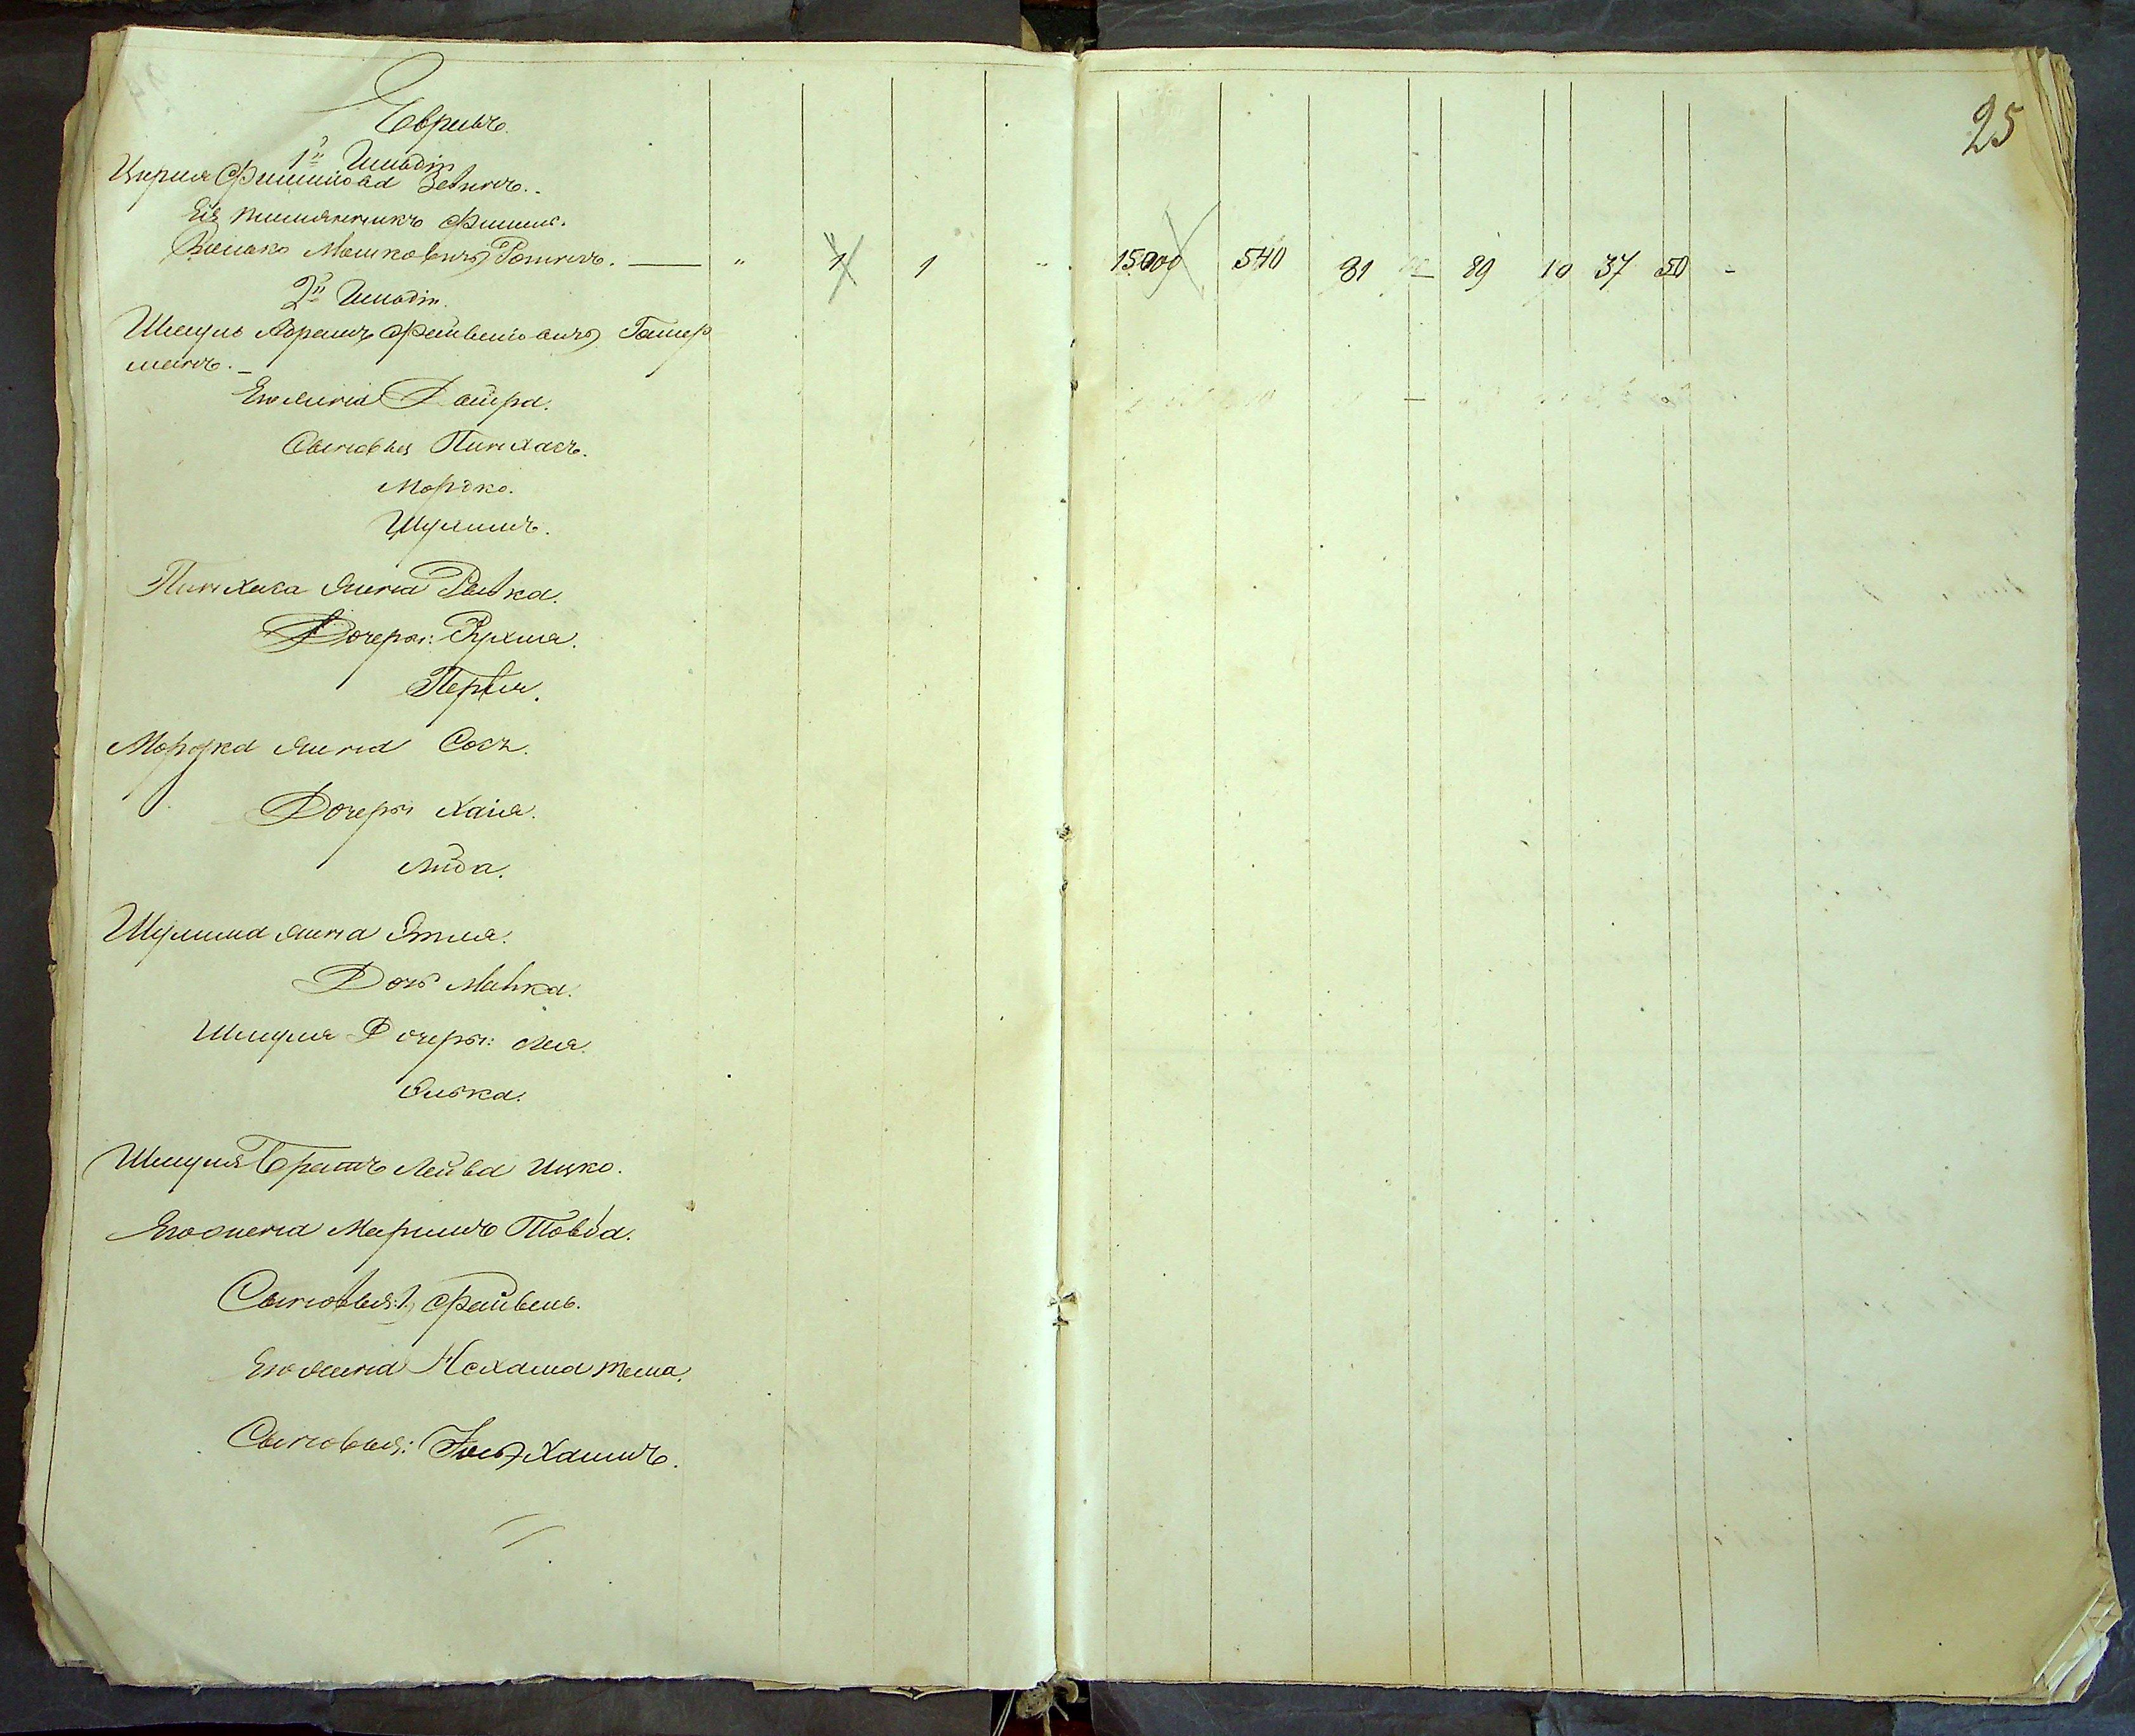 Евреевъ.
1й Гильдіи
Цирля Фишелова Зейлигъ.
Ея племянникъ Фишель
Мошковичъ Ройнихъ. — " 1 1 " 15000 540 81 — 89 10 37 50 -
2й Гильдіи.
Шмуль Абрамъ Файвелевичъ Гамер
манъ. -
Его жена Двойра.
Сыновья Пинхасъ.
Мордко.
Шулимъ.
Пинхаса жена Рейка.
Дочери: Рухля.
Перля.
Мордка жена Сося.
Дочери Хаія.
Лида.
Шулима жена Этля.
Дочь Малка.
Шмуля Дочери: Лея.
Элька.
Шмуля братъ Лейба Ицко.
Его жена Маріимъ Товба.
Сыновья: 1, Файвель.
Его жена Нехама тема.
Сыновья: Хаимъ.
25